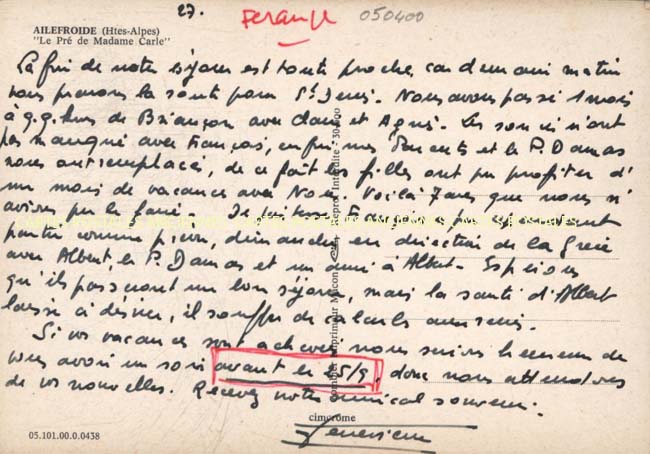 27.
ferangé 050400
AILEFROIDE (Htes-Alpes)
"Le Pré de Madame Carle"
La fin de notre séjour est toute proche, car demain matin
nous prenons la route pour St Denis. Nous avons passé 1 mois
à q.q. kms de Briançon avec Claire et Agnès. Les soucis n'ont
pas manqué avec François, enfin mes Parents et le P. Damas
nous ont remplacés, de ce fait les filles ont pu profiter d'
un mois de vacance avec Nous. Voilà 7 ans que nous n'
avions pu le faire. François
partir comme prévu, dimanche en direction de la Grèce
avec Albert, le P. Damas et un ami à Albert. Espérons
qu'ils passeront un bon séjour, mais la santé d'Albert
laisse à désirer, il souffre de calculs aux reins.
Si vos vacances sont achevées nous serions heureux de
vous avoir un soir avant le 15/9, donc nous attendons
de vos nouvelles. Recevez notre amical souvenir.
cimcrome
Geneviève
05.101.00.0.0438
Reprod. Interdite - 30400